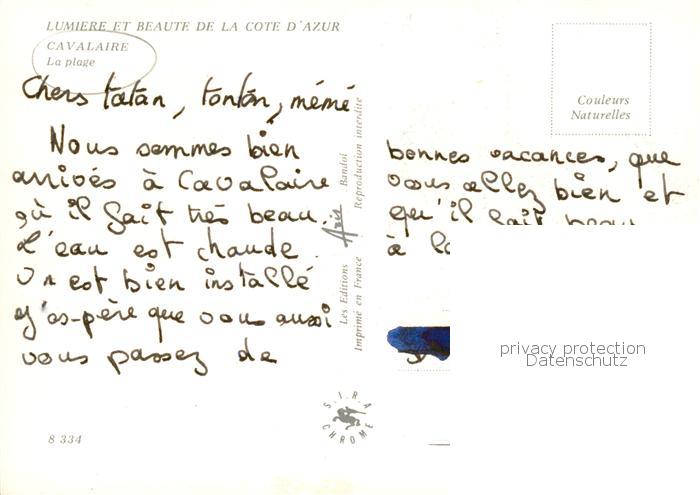 LUMIERE ET BEAUTE DE LA COTE D'AZUR
CAVALAIRE
La plage
Chers tatan, tonton, mémé
Nous sommes bien
arrivés à Cavalaire
où il fait très beau.
L'eau est chaude.
On est bien installé
j'as-père que vous aussi
vous passez de
8 334
Les Editions Aris Bandol
Imprimé en France Reproduction interdite
S.I.R.A.
CHROME
Couleurs
Naturelles
bonnes vacances, que
vous allez bien et
qu'il fait beau
à
privacy protection
Datenschutz